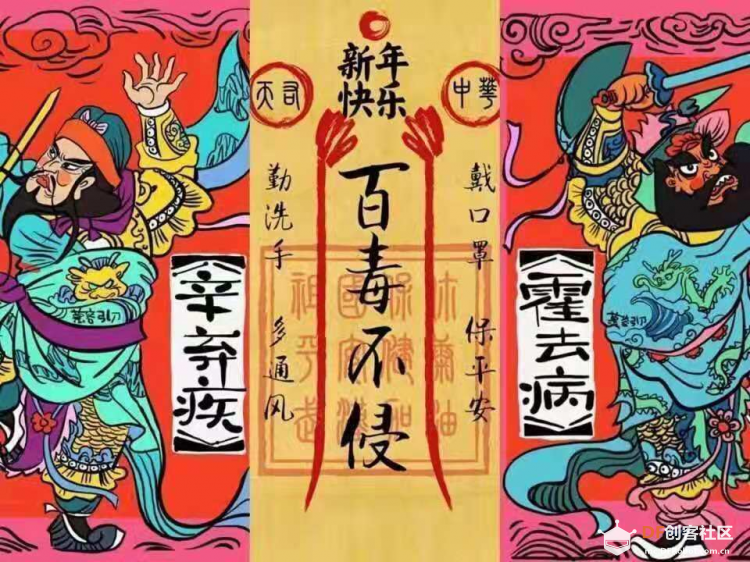 新年
快乐
天司
中華
戴口罩 保平安
百毒不侵
勤洗手 多通风
【霍去病】
【辛弃疾】
创客社区